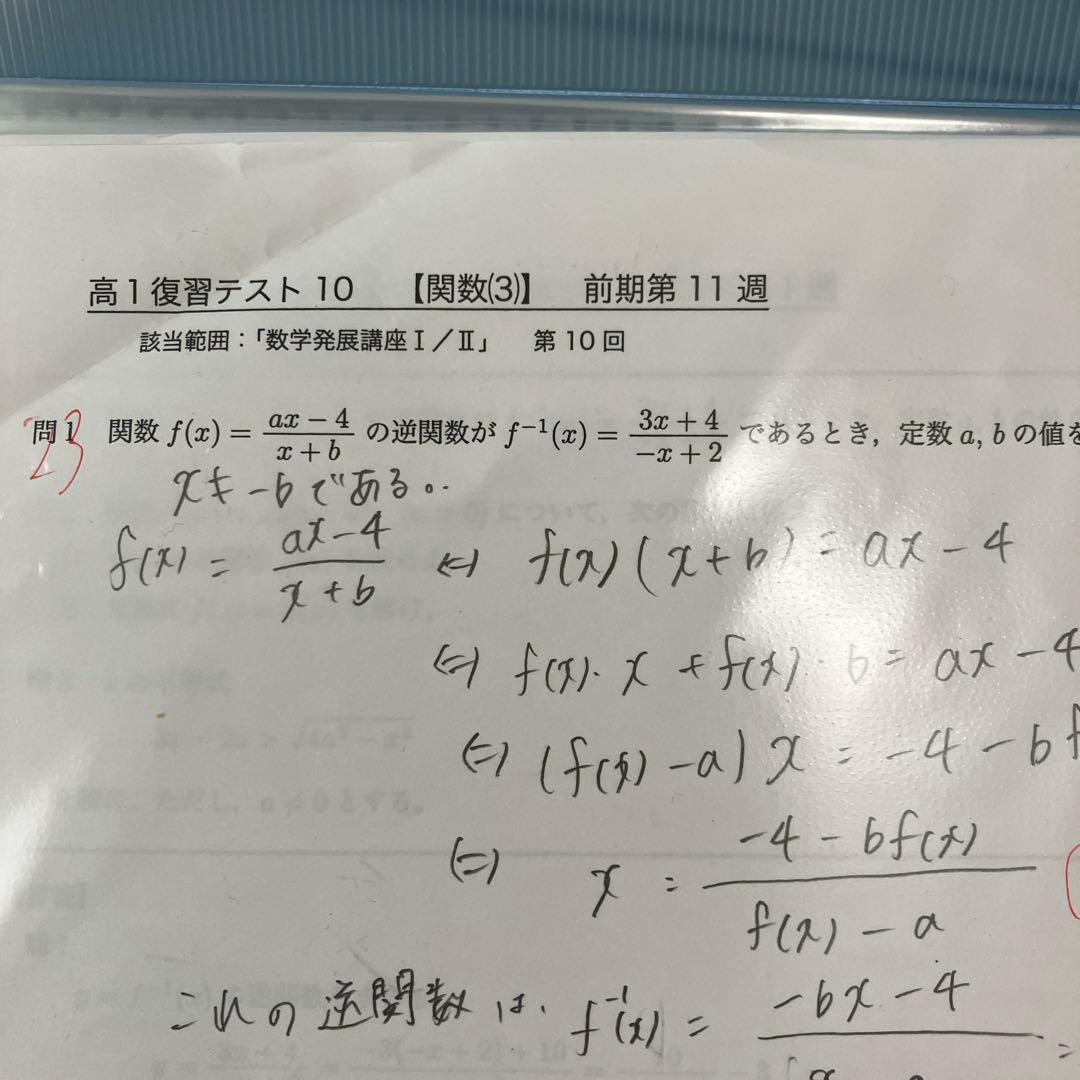 高1復習テスト10 【関数(3)】 前期第11週
該当範囲:「数学発展講座Ⅰ/Ⅱ」 第10回
問1 関数 f(x) = \frac{ax-4}{x+b} の逆関数が f^{-1}(x) = \frac{3x+4}{-x+2} であるとき,定数 a, b の値を
23
x ≠ -b である。
f(x) = \frac{ax-4}{x+b} ⇔ f(x)(x+b) = ax-4
⇔ f(x)·x + f(x)·b = ax-4
⇔ (f(x)-a)x = -4-bf
⇔ x = \frac{-4-bf(x)}{f(x)-a}
これの逆関数は、f^{-1}(x) = \frac{-bx-4}{} =